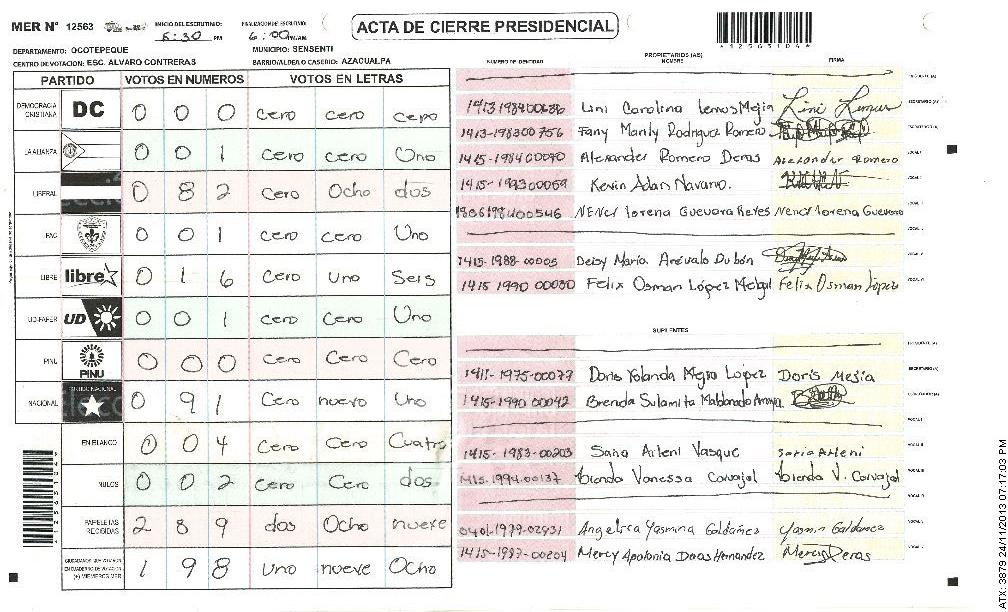 MER Nº 12563
INICIO DEL ESCRUTINIO: 5:30 PM
FINALIZACION DE ESCRUTINIO: 6:00
ACTA DE CIERRE PRESIDENCIAL
DEPARTAMENTO: OCOTEPEQUE
MUNICIPIO: SENSENTI
CENTRO DE VOTACION: ESC. ALVARO CONTRERAS
BARRIO/ALDEA O CASERIO: AZACUALPA
PARTIDO VOTOS EN NUMEROS VOTOS EN LETRAS
DEMOCRACIA CRISTIANA DC 0 0 0 cero cero cero
LA ALIANZA 0 0 1 cero cero Uno
LIBERAL 0 8 2 cero Ocho dos
FAC 0 0 1 cero cero Uno
LIBRE libre 0 1 6 Cero Uno Seis
UD-FAPER UD 0 0 1 Cero Cero Uno
PINU PINU 0 0 0 Cero Cero Cero
NACIONAL 0 9 1 Cero nueve Uno
EN BLANCO 0 0 4 Cero Cero Cuatro
NULOS 0 0 2 Cero Cero dos.
PAPELETAS RECIBIDAS 2 8 9 dos Ocho nueve
1 9 8 Uno nueve Ocho
NUMERO DE IDENTIDAD
PROPIETARIOS (AS)
NOMBRE
FIRMA
Lini Carolina Lemus Mejia Lini Lemus
1413-198300756 Fany Marily Rodriguez Romero
1415-198400090 Alexander Romero Deras Alexander Romero
1415-199300059 Kevin Adan Navarro.
Nency Lorena Guevara Reyes Nency Lorena Guevara
1415-1988-00005 Deisy María Arévalo Dubón
1415 1990 00030 Felix Osman López Melgal Felix Osman López
SUPLENTES
1411-1975-00077 Doris Yolanda Mejia Lopez Doris Mejia
1415-1990 00042 Brenda Sulamita Maldonado
1415-1983-00203 Arleni Vasque Arleni
1415-1994-00137 Brenda Vanessa Carvajal Brenda V. Carvajal
0401-1979-02931 Angelica Yasmina Galdamez Yasmin Galdamez
1415-1987-00204 Mercy Apolonia Deras Hernandez Mercy Deras
ATX: 3879 24/11/2013 07:17:03 PM